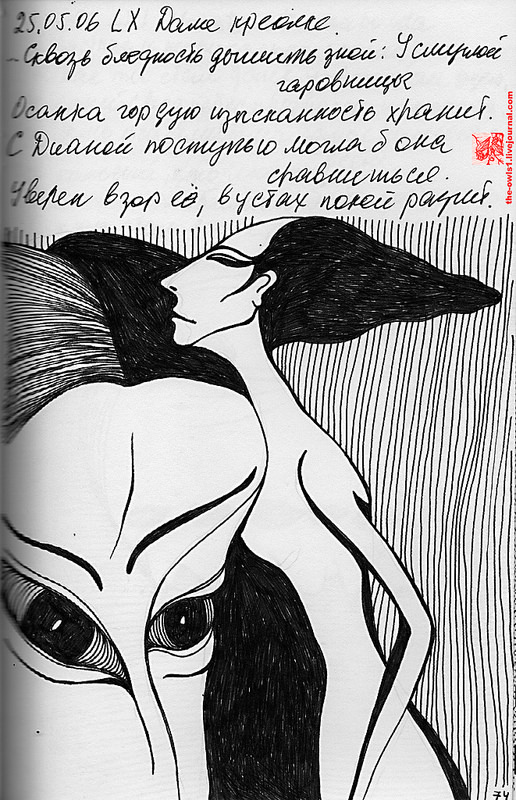 25.05.06 LX Даме креолке.
- Сквозь бледность дышить зной: У смуглой
чаровницы
Осанка гордую изысканность хранит.
С Дианой поступью могла б она
сравниться.
Уверен взор её, в устах покой разлит.
the-owls1.livejournal.com
74